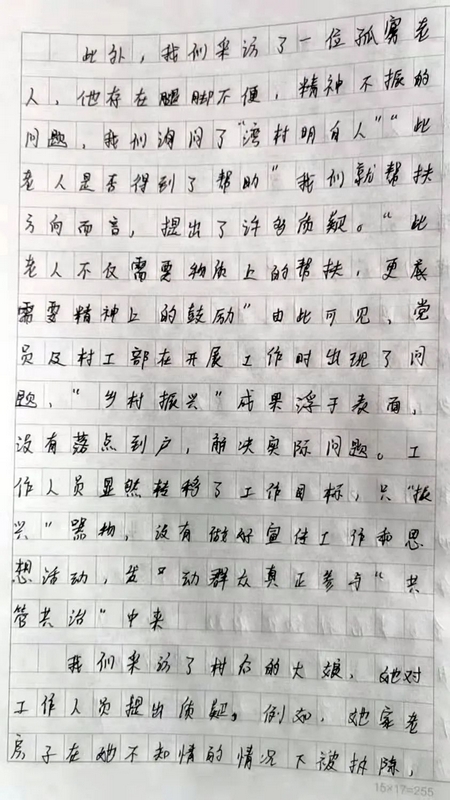 此外，我们采访了一位孤寡老
人，他存在腿脚不便，精神不振的
问题，我们询问了“湾村明白人”“此
老人是否得到了帮助”我们就帮扶
方向而言，提出了许多质疑。“此
老人不仅需要物质上的帮扶，更
需要精神上的鼓励”由此可见，党
员及村工部在开展工作时出现了问
题，“乡村振兴”成果浮于表面，
没有落点到户，解决实际问题。工
作人员显然转移了工作目标，只“振
兴”器物，没有做好宣传工作和思
想活动，发动群众真正参与“共
管共治”中来
我们采访了村存的大娘，她对
工作人员提出质疑。例如，她家老
房子在她不知情的情况下被拆除，
15×17=255